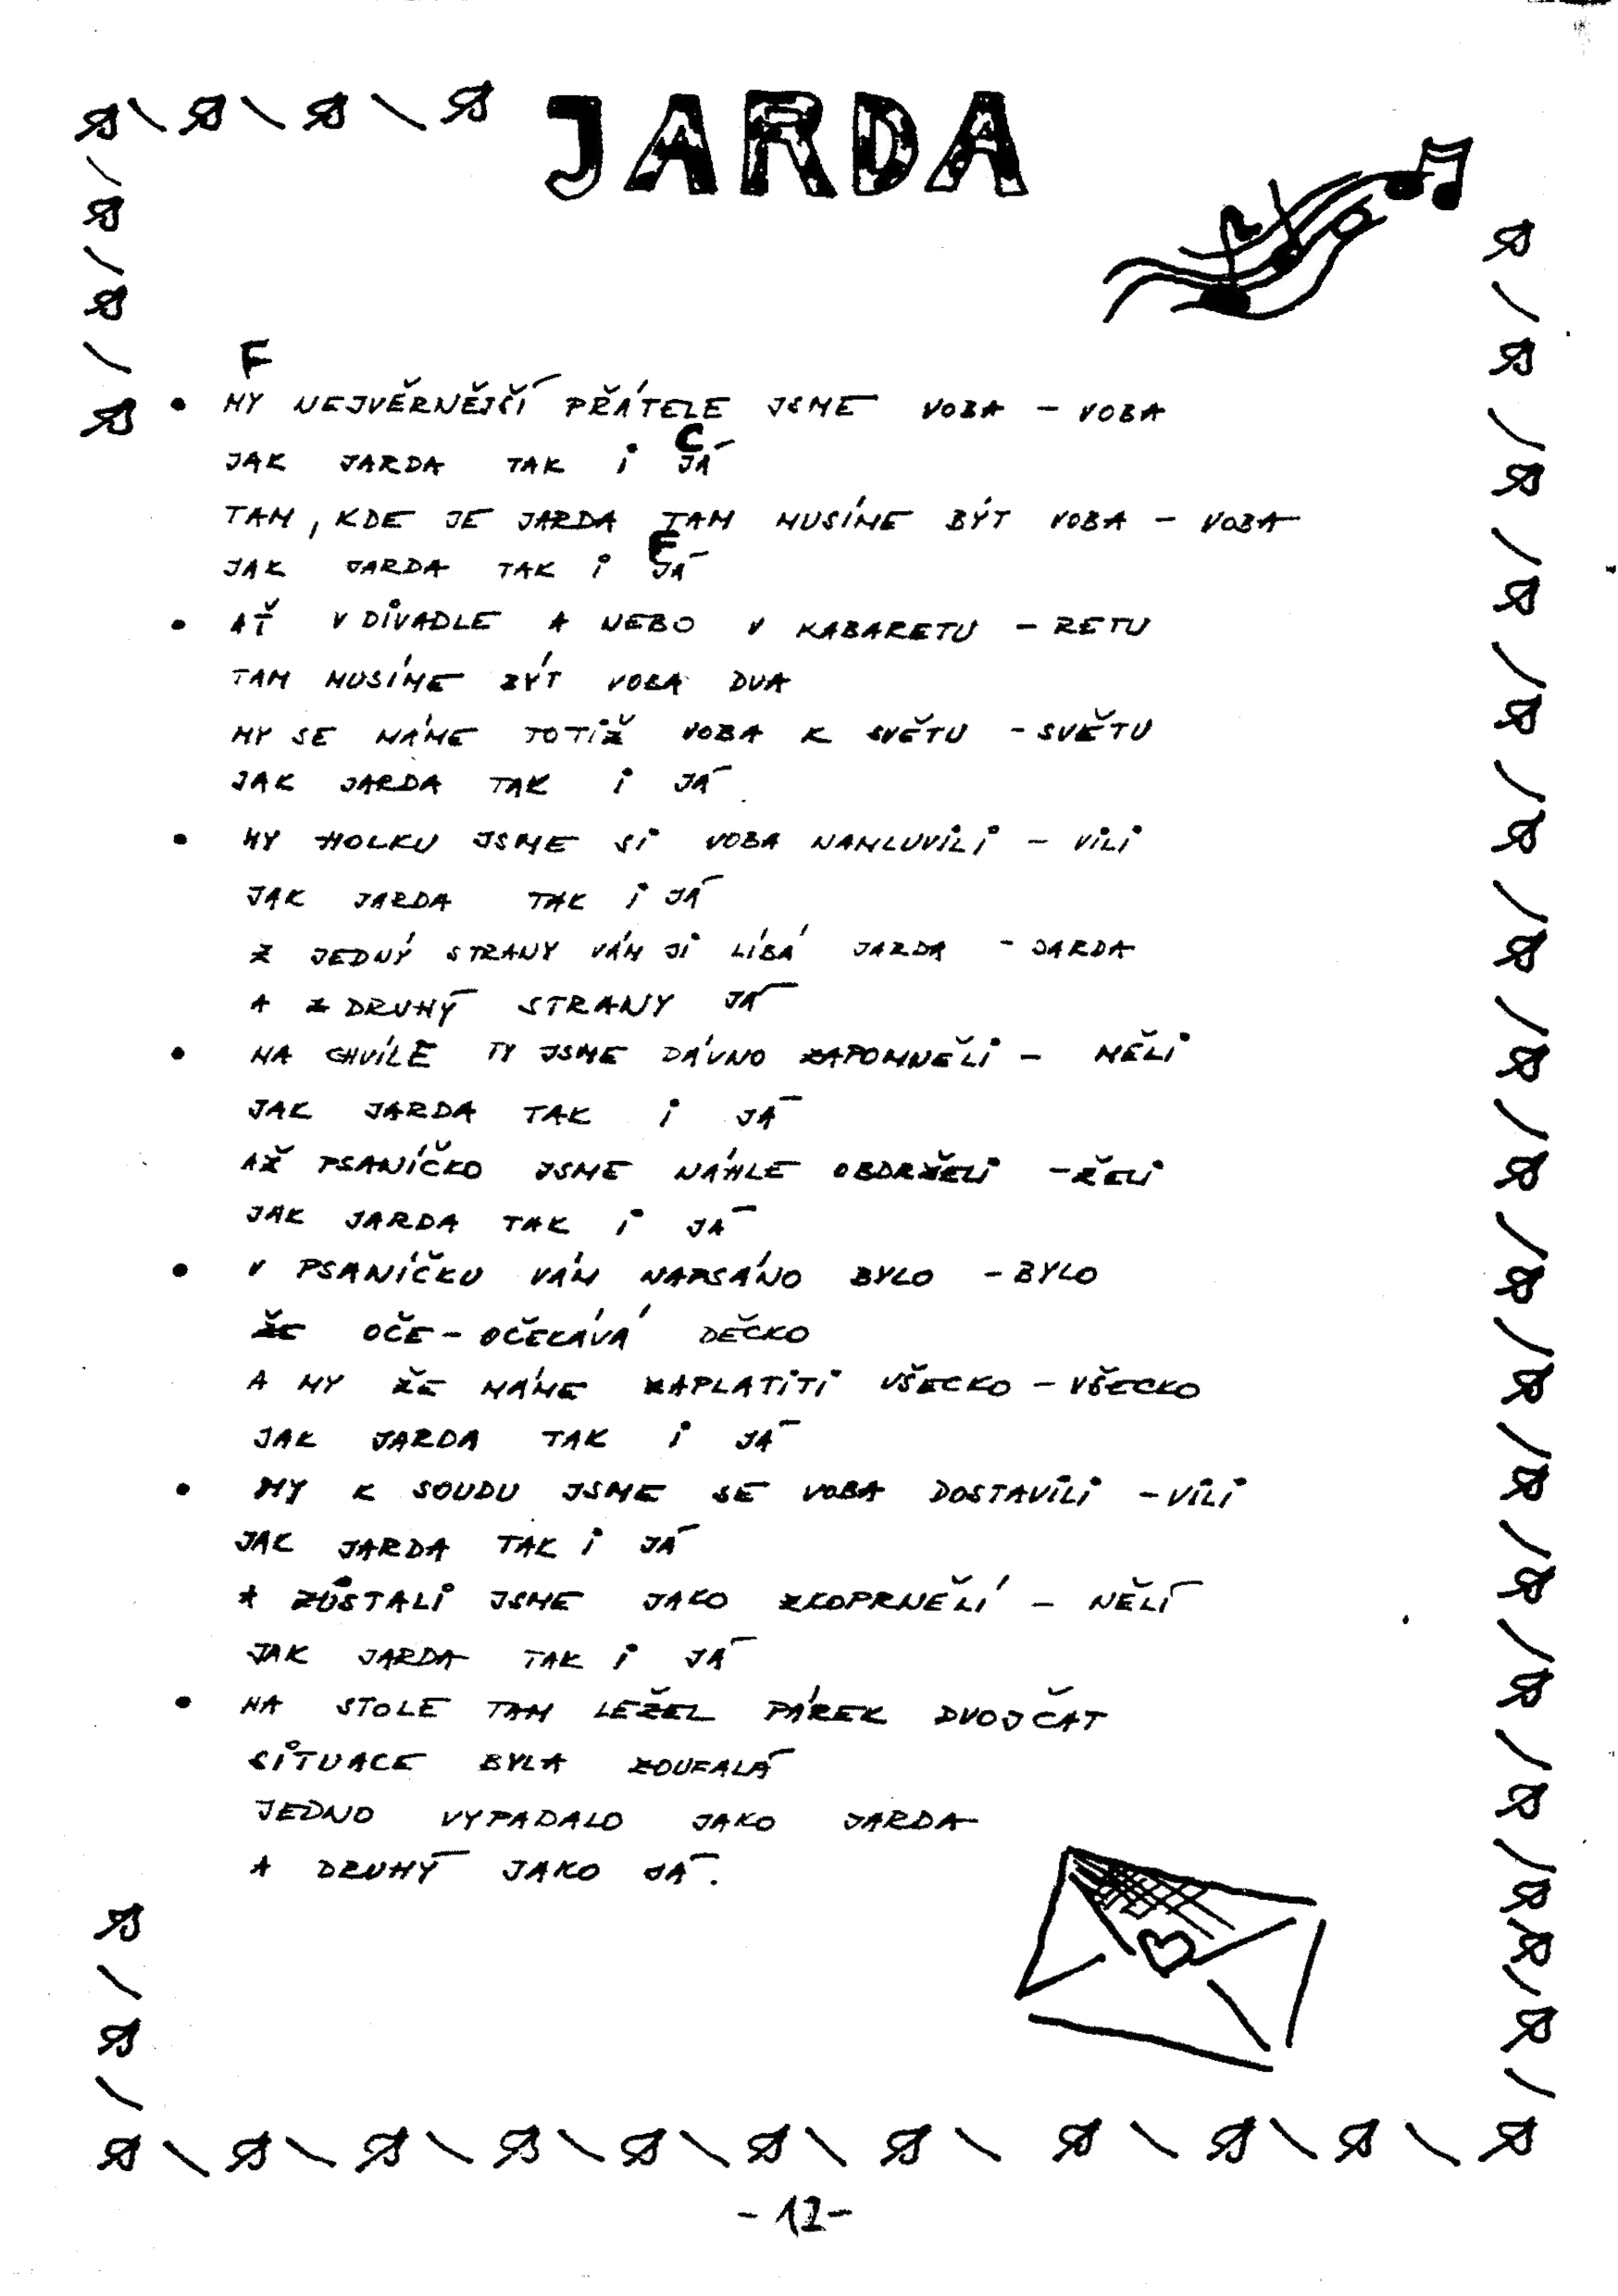 JARDA
F
• MY NEJVĚRNĚJŠÍ PŘÁTELE JSME VOBA - VOBA
C
JAK JARDA TAK i JÁ
TAM, KDE JE JARDA TAM MUSÍME BÝT VOBA - VOBA
F
JAK JARDA TAK i JÁ
• AŤ V DiVADLE A NEBO V KABARETU - RETU
TAM MUSÍME BÝT VOBA DVA
MY SE MÁME TOTiŽ VOBA K SVĚTU - SVĚTU
JAK JARDA TAK i JÁ
• MY HOLKU JSME Si VOBA NAMLUViLi - ViLi
JAK JARDA TAK i JÁ
Z JEDNÝ STRANY VÁM Ji LÍBÁ JARDA - JARDA
A Z DRUHÝ STRANY JÁ
• NA CHVÍLE TY JSME DÁVNO ZAPOMNĚLi - MĚLi
JAK JARDA TAK i JÁ
AŽ PSANÍČKO JSME NÁHLE OBDRŽELi - ŽELi
JAK JARDA TAK i JÁ
• V PSANÍČKU VÁM NAPSÁNO BYLO - BYLO
ŽE OČE - OČEKÁVÁ DĚČKO
A MY ŽE MÁME ZAPLATiTi VŠECKO - VŠECKO
JAK JARDA TAK i JÁ
• MY K SOUDU JSME SE VOBA DOSTAViLi - ViLi
JAK JARDA TAK i JÁ
A ZŮSTALi JSME JAKO ZKOPRNĚLÍ - NĚLÍ
JAK JARDA TAK i JÁ
• NA STOLE TAM LEŽEL PÁREK DVOJČAT
SiTUACE BYLA ZOUFALÁ
JEDNO VYPADALO JAKO JARDA
A DRUHÝ JAKO JÁ.
- 12 -